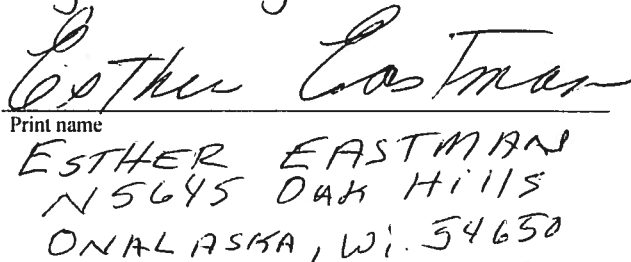 Esther Eastman
Print name
ESTHER EASTMAN
N5645 OAK Hills
ONALASKA, Wi. 54650